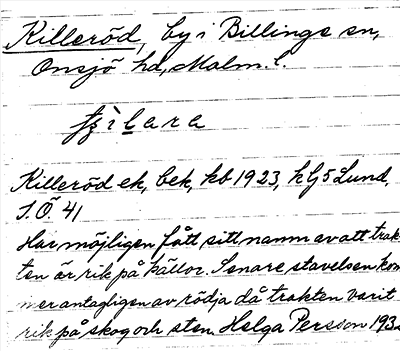 Killeröd, by i Billinge sn,
Onsjö hd, Malm. l.
Killeröd ek, bek, kb 1923, h Lj 5 Lund,
S.Ö. 41
Har möjligen fått sitt namn av att trak-
ten är rik på källor. Senare stavelsen kom-
mer antagligen av rödja då trakten varit
rik på skog och sten. Helga Persson 193